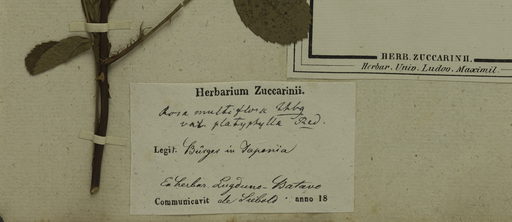 HERB. ZUCCARINII.
Herbar. Univ. Ludov. Maximil.
Herbarium Zuccarinii.
Rosa multiflora Thbg
var. platyphylla Red.
Legit. Bürger in Japonia
Ex herbar. Lugduno-Batavo
Communicavit de Siebold anno 18